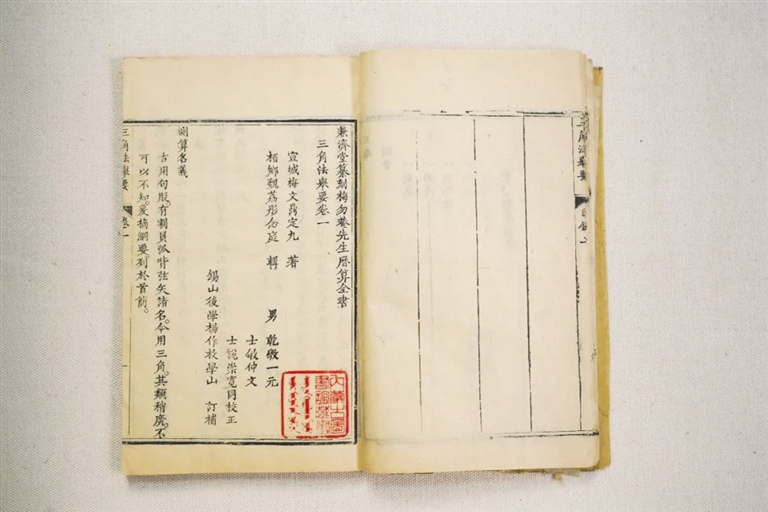 三角法舉要
目錄
兼濟堂纂刻梅勿菴先生曆算全書
三角法舉要卷一
宣城梅文鼎定九 著
栢鄉魏荔彤念庭 輯 男 乾斆一元
士敏仲文
士說崇寬同校正
錫山後學楊作枚學山 訂補
測算名義
古用句股。有割員弧背弦矢諸名。今用三角。其類稍廣。不
可以不知。爰摘綱要。列於首簡。
三角法舉要 卷一
內蒙古圖
書館藏書